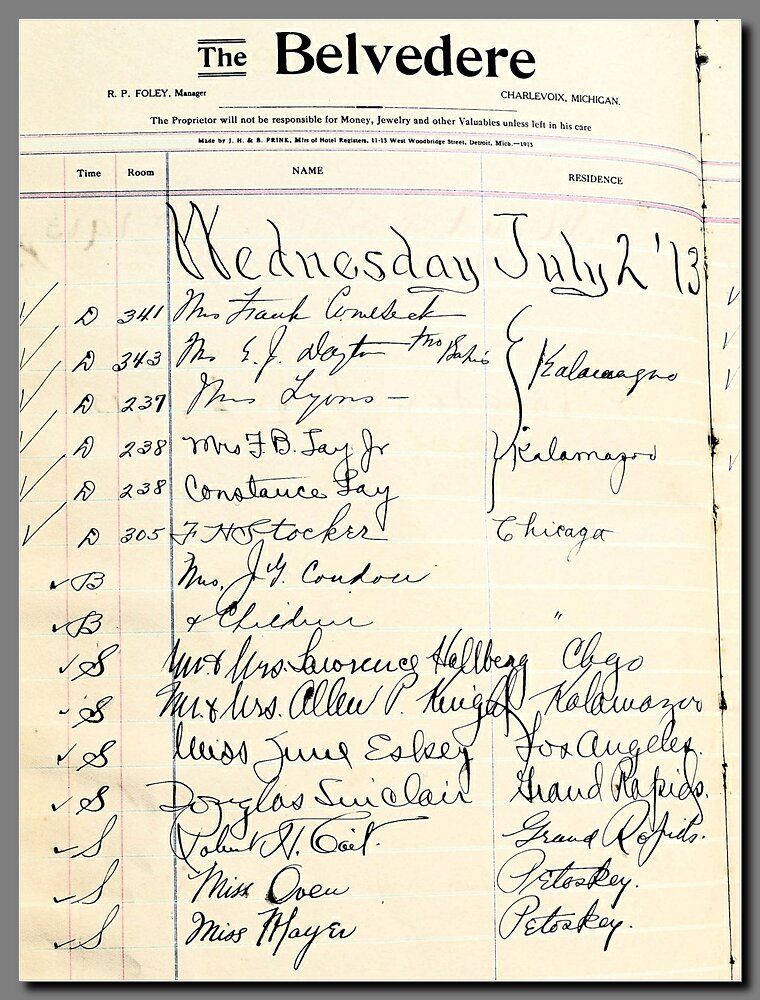 The Belvedere
R. P. FOLEY, Manager CHARLEVOIX, MICHIGAN.
The Proprietor will not be responsible for Money, Jewelry and other Valuables unless left in his care
Made by J. H. & B. PRINK, Mfrs of Hotel Registers, 11-15 West Woodbridge Street, Detroit, Mich.—1913
Time Room NAME RESIDENCE
Wednesday July 2 '13
D 341 Mrs Frank
D 343 Mrs E. J. Dayton Kalamazoo
D 237 Mrs Lyons —
D 238 Mrs F. B. Lay Jr Kalamazoo
D 238 Constance Lay
D 305 F H Stocker Chicago
B Mrs. J. G. Condon
B & Children "
S Mr. & Mrs. Lawrence Hallberg Chgo
S Mr. & Mrs. Allen P. Knight Kalamazoo
S Miss June Eskey Los Angeles.
S Douglas Sinclair Grand Rapids.
S Robert H. Grand Rapids.
S Miss Oven Petoskey.
S Miss Mayer Petoskey.